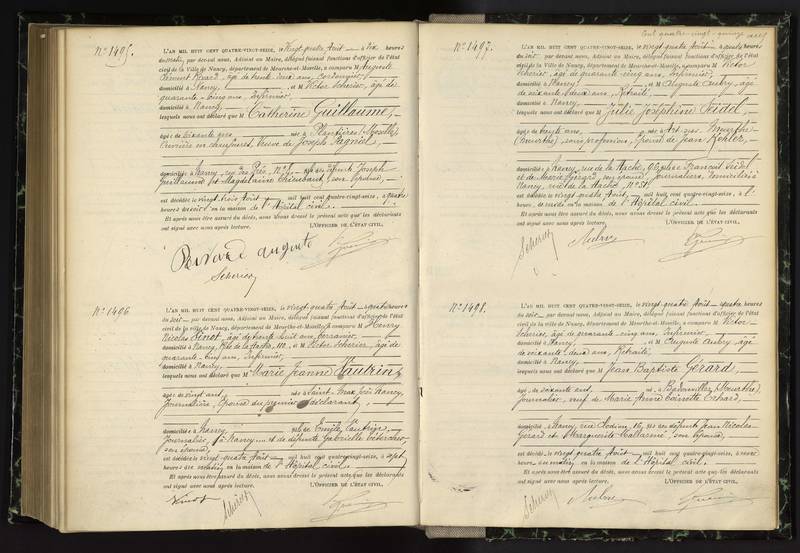 Cent quatre-vingt-quinze
N° 1495.
L'AN MIL HUIT CENT QUATRE-VINGT-SEIZE, le vingt-quatre Août à dix heures
du matin, par devant nous, Adjoint au Maire, délégué faisant fonctions d'officier de l'état
civil de la Ville de Nancy, département de Meurthe-et-Moselle, a comparu M Auguste
âgé de trente deux ans, cordonnier,
domicilié à Nancy, et M Victor Scherier, âgé de
quarante-cinq ans, Infirmier,
domicilié à Nancy,
lesquels nous ont déclaré que M Catherine Guillaume,
âgée de soixante ans, née à Plantières (Moselle)
Ouvrière en chaussures, Veuve de Joseph
domiciliée à Nancy, rue des fille de défunts Joseph
Guillaume et Magdelaine son épouse,
est décédée le vingt-trois Août mil huit cent quatre-vingt-seize, à quatre
heures du soir en la maison de l'Hôpital civil.
Et après nous être assuré du décès, nous avons dressé le présent acte que les déclarants
ont signé avec nous après lecture. L'OFFICIER DE L'ÉTAT CIVIL,
auguste
Scherier
N° 1496
L'AN MIL HUIT CENT QUATRE-VINGT-SEIZE, le vingt-quatre Août à quatre heures
du soir par devant nous, Adjoint au Maire, délégué faisant fonctions d'officier de l'état
civil de la ville de Nancy, département de Meurthe-et-Moselle, a comparu M Henry
Nicolas âgé de trente huit ans,
domicilié à Nancy, et M Victor Scherier, âgé de
quarante-cinq ans, Infirmier,
domicilié à Nancy,
lesquels nous ont déclaré que M Marie Jeanne Vautrin,
âgée de vingt ans, née à Saint-Max près Nancy,
Journalière, épouse du premier déclarant,
domiciliée à Nancy fille de Emile Vautrin,
Journalier, à Nancy et de défunte Gabrielle
son épouse,
est décédée le vingt-quatre Août mil huit cent quatre-vingt-seize, à sept
heures du matin, en la maison de l'Hôpital civil.
Et après nous être assuré du décès, nous avons dressé le présent acte que les déclarants
ont signé avec nous après lecture. L'OFFICIER DE L'ÉTAT CIVIL,
Scherier
N° 1497.
L'AN MIL HUIT CENT QUATRE-VINGT-SEIZE, le vingt-quatre Août à quatre heures
du soir par devant nous, Adjoint au Maire, délégué faisant fonctions d'officier de l'état
civil de la Ville de Nancy, département de Meurthe-et-Moselle, a comparu M Victor
Scherier, âgé de quarante-cinq ans, Infirmier,
domicilié à Nancy et M Auguste Aubry, âgé
de soixante-deux ans, Retraité,
domicilié à Nancy,
lesquels nous ont déclaré que M Julie Joséphine Seidel,
âgée de trente ans, née à Art-sur-Meurthe
(Meurthe), sans profession, Epouse de Jean Kohler,
domiciliée à Nancy, rue de la Hache, fille de François Seidel
et de Marie son épouse, journaliers, domiciliés à
Nancy, rue de la Hache, N°
est décédée le vingt-quatre Août, mil huit cent quatre-vingt-seize, à
heure, du matin en la maison de l'Hôpital civil.
Et après nous être assuré du décès, nous avons dressé le présent acte que les déclarants
ont signé avec nous après lecture. L'OFFICIER DE L'ÉTAT CIVIL,
Scherier Aubry
N° 1498.
L'AN MIL HUIT CENT QUATRE-VINGT-SEIZE, le vingt-quatre Août à quatre heures
du soir par devant nous, Adjoint au Maire, délégué faisant fonctions d'officier de l'état
civil de la ville de Nancy, département de Meurthe-et-Moselle, a comparu M Victor
Scherier, âgé de quarante-cinq ans, Infirmier,
domicilié à Nancy et M Auguste Aubry, âgé
de soixante-deux ans, Retraité,
domicilié à Nancy,
lesquels nous ont déclaré que M Jean Baptiste Gérard,
âgé de soixante ans, né à Badonviller (Meurthe),
Journalier, veuf de Marie Anne
domicilié à Nancy, rue 16, fils des défunts Jean Nicolas
Gérard et Marguerite son épouse,
est décédé le vingt-quatre Août, mil huit cent quatre-vingt-seize, à onze
heures du matin, en la maison de l'Hôpital civil.
Et après nous être assuré du décès, nous avons dressé le présent acte que les déclarants
ont signé avec nous après lecture. L'OFFICIER DE L'ÉTAT CIVIL,
Scherier Aubry